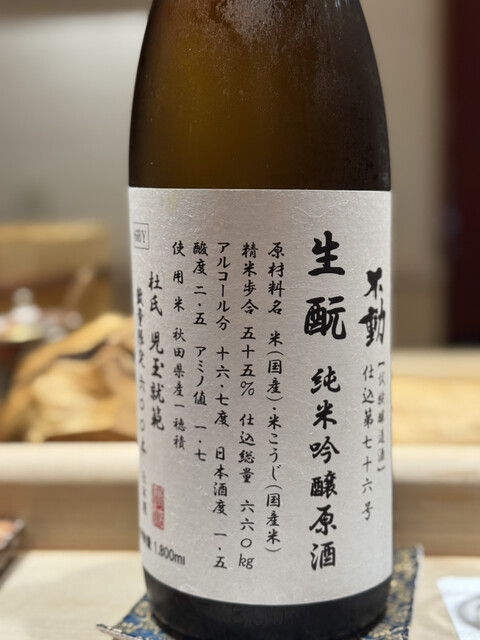 不動
仕込第七十六号
生酛 純米吟醸原酒
原材料名 米(国産)・米こうじ(国産米)
精米歩合 五十五% 仕込総量 六六〇kg
アルコール分 十六・七度 日本酒度 一・五
酸度 二・五 アミノ値 一・七
使用米 秋田県産一穂積
杜氏 児玉就範
数量限定六〇〇本
1,800ml